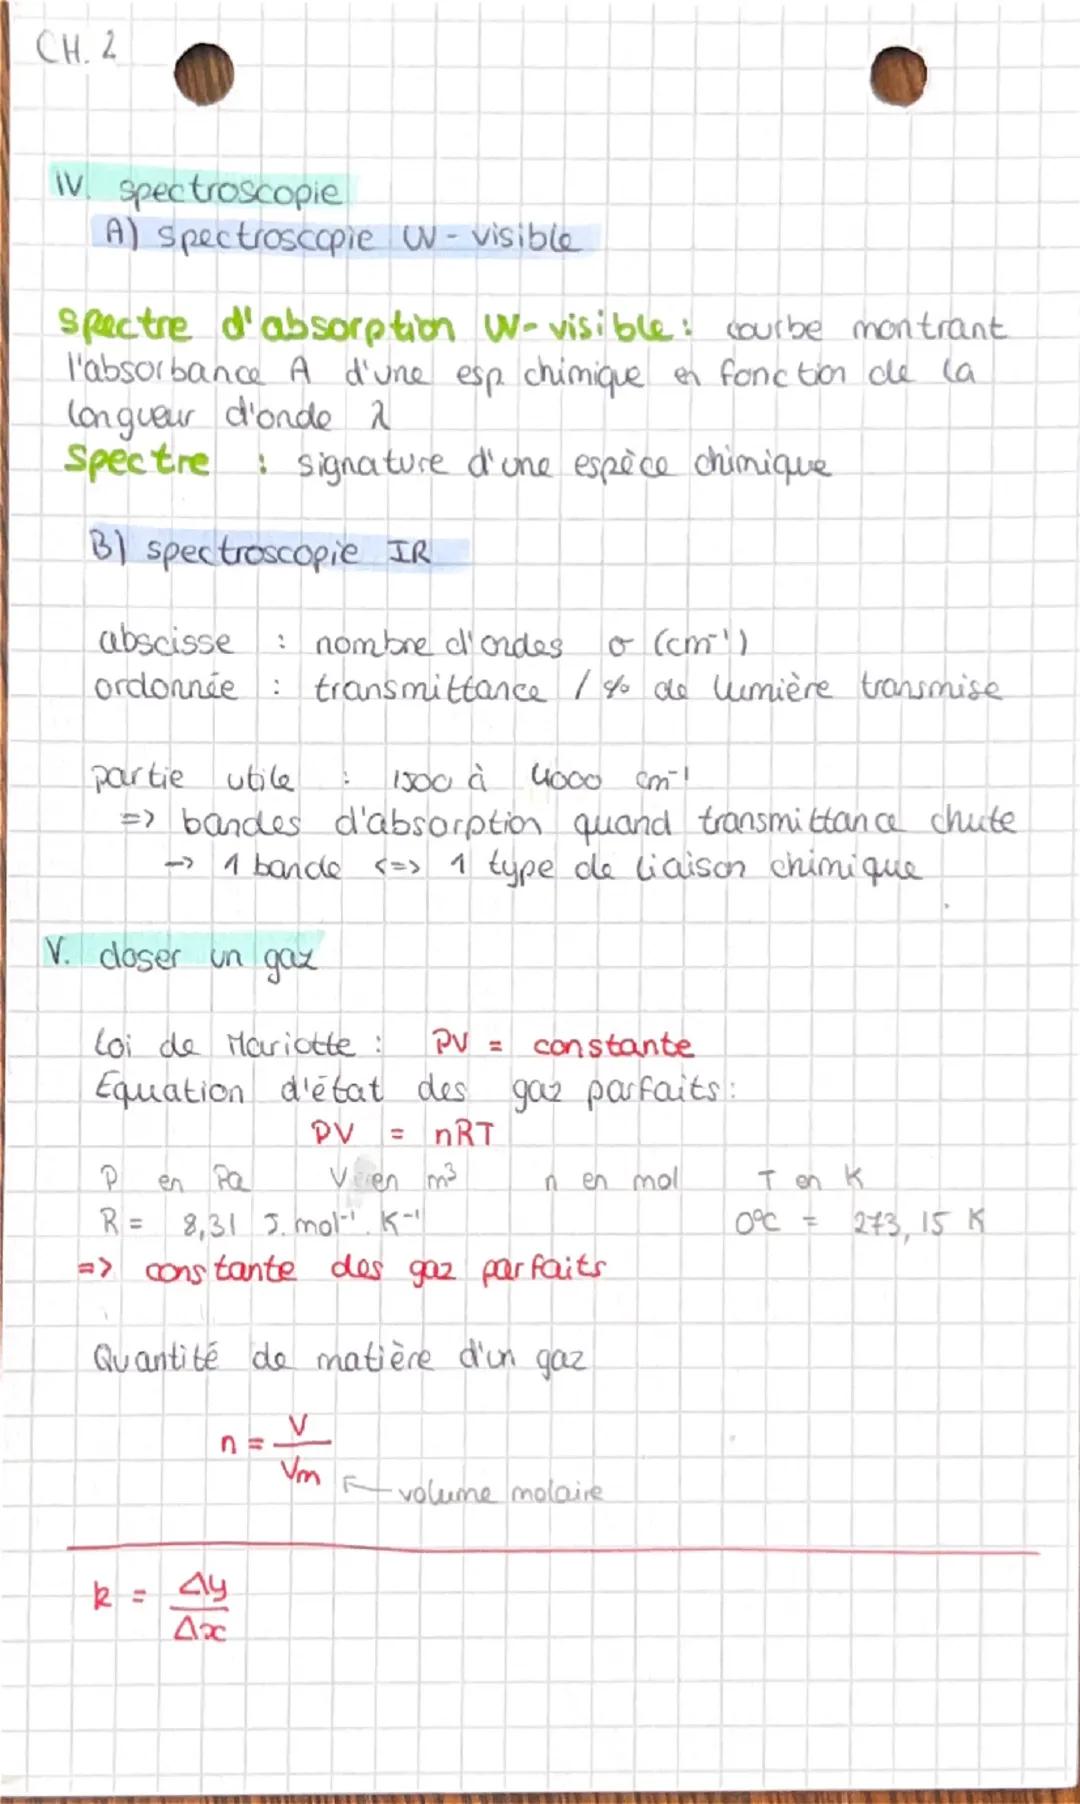 CH. 2
IV. spectroscopie
A) spectroscopie UV-visible
spectre d'absorption UV-visible : courbe montrant
l'absorbance A d'une esp chimique en fonction de la
longueur d'onde λ
Spectre : signature d'une espèce chimique
B) spectroscopie IR
abscisse : nombre d'ondes σ (cm⁻¹)
ordonnée : transmittance / % de lumière transmise
partie utile : 1500 à 4000 cm⁻¹
=> bandes d'absorption quand transmittance chute
-> 1 bande <=> 1 type de liaison chimique
V. doser un gaz
Loi de Mariotte : PV = constante
Equation d'état des gaz parfaits :
PV = nRT
P en Pa V en m³ n en mol T en K
R = 8,31 J.mol⁻¹.K⁻¹ 0°C = 273,15 K
=> constante des gaz parfaits
Quantité de matière d'un gaz
n = V/Vm ← volume molaire
k = Δy/Δx